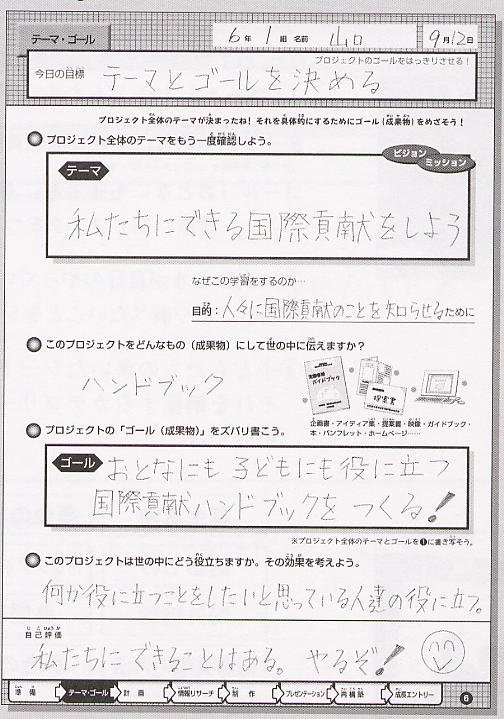 テーマ・ゴール
6年 1組 名前 山口 9月12日
プロジェクトのゴールをはっきりさせる!
今日の目標 テーマとゴールを決める
プロジェクト全体のテーマが決まったね! それを具体的にするためにゴール(成果物)をめざそう!
プロジェクト全体のテーマをもう一度確認しよう。
ビジョン
ミッション
テーマ
私たちにできる国際貢献をしよう
なぜこの学習をするのか…
目的:人々に国際貢献のことを知らせるために
このプロジェクトをどんなもの(成果物)にして世の中に伝えますか?
ハンドブック
ガイドブック
提案書
企画書・アイディア集・提案書・映像・ガイドブック・
本・パンフレット・ホームページ……
プロジェクトの「ゴール(成果物)」をズバリ書こう。
ゴール
おとなにも 子どもにも役に立つ
国際貢献ハンドブックを つくる!
※プロジェクト全体のテーマとゴールを❶に書き写そう。
このプロジェクトは世の中にどう役立ちますか。その効果を考えよう。
何か役に立つことをしたいと思っている人達の役に立つ。
自己評価
私たちにできることはある。 やるぞ!
準備 テーマ・ゴール 計画 情報リサーチ 制作 プレゼンテーション 再構築 成長エントリー
6